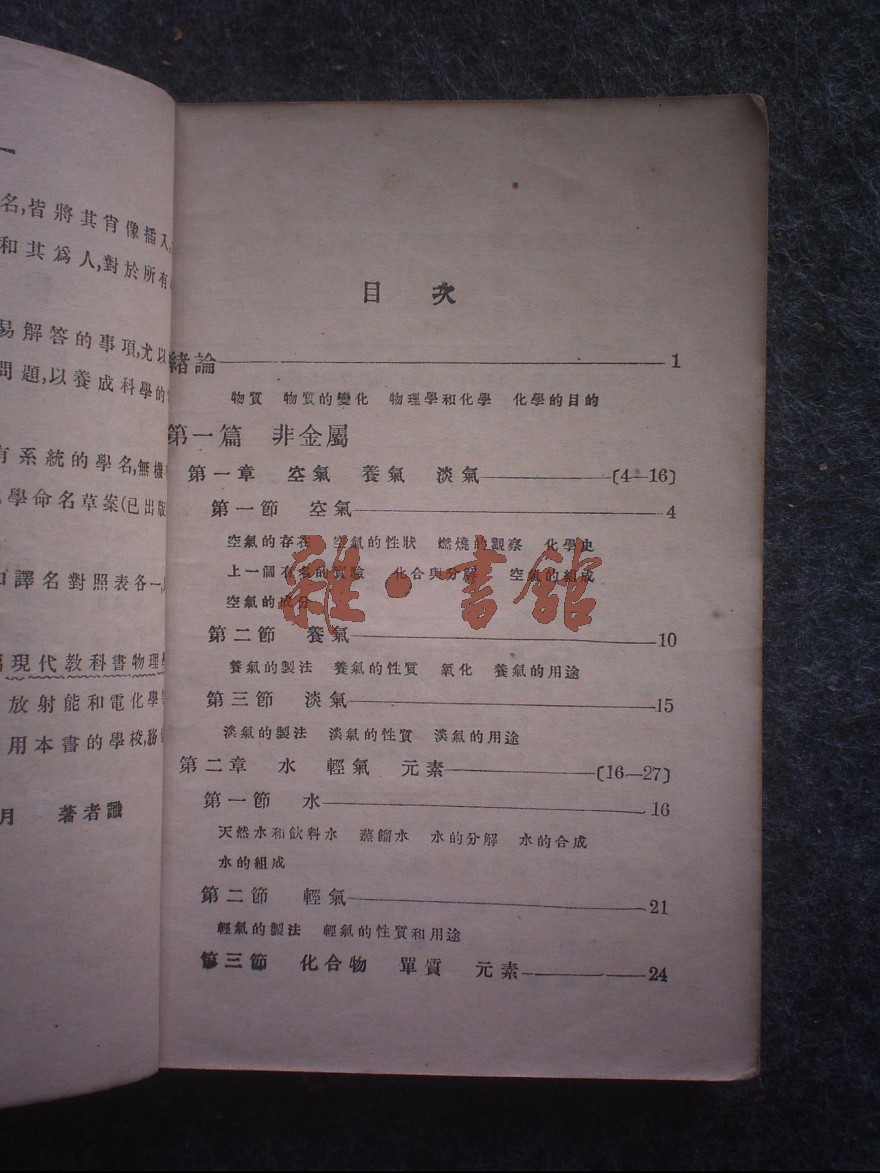 一
名,皆將其肖像插入,
和其爲人,對於所有
易解答的事項,尤以
問題,以養成科學的
有系統的學名,無機
學命名草案(已出版
譯名對照表各一,
現代教科書物理學
放射能和電化學
用本書的學校,務
月 著者識
目 次
緒論 1
物質 物質的變化 物理學和化學 化學的目的
第一篇 非金屬
第一章 空氣 養氣 淡氣 〔4—16〕
第一節 空氣 4
空氣的存在 空氣的性狀 燃燒的觀察 化學史
上一個有名的實驗 化合與分解 空氣的組成
空氣的成分
第二節 養氣 10
養氣的製法 養氣的性質 氧化 養氣的用途
第三節 淡氣 15
淡氣的製法 淡氣的性質 淡氣的用途
第二章 水 輕氣 元素 〔16—27〕
第一節 水 16
天然水和飲料水 蒸餾水 水的分解 水的合成
水的組成
第二節 輕氣 21
輕氣的製法 輕氣的性質和用途
第三節 化合物 單質 元素 24
雜·書館